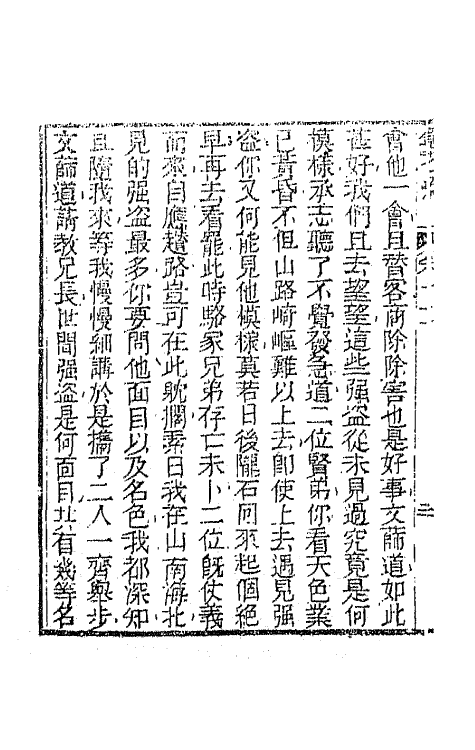 會他一會且替客商除除害也是好事文蒒道如此
甚好我們且去望望這些强盗從未見過究竟是何
模樣承志聽了不覺發急道二位賢弟你看天色業
已黃昏不但山路崎嶇難以上去卽使上去遇見强
盗你又何能見他模樣莫若日後隴右回來起個絕
早再去看罷此時駱家兄弟存亡未卜二位旣仗義
而來自應趲路豈可在此躭擱素日我在山南海北
見的强盗最多你要問他面目以及名色我都深知
且隨我來等我慢慢細講於是攜了二人一齊舉步
文蒒道請教兄長世間强盗是何面目共有幾等名